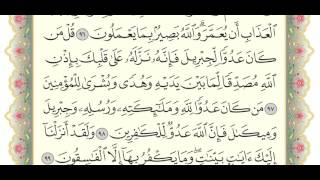 ٱلْعَذَابِ أَن يُعَمَّرَ وَٱللَّهُ بَصِيرٌۢ بِمَا يَعْمَلُونَ ٩٦ قُلْ مَن
كَانَ عَدُوًّا لِّجِبْرِيلَ فَإِنَّهُۥ نَزَّلَهُۥ عَلَىٰ قَلْبِكَ بِإِذْنِ
ٱللَّهِ مُصَدِّقًا لِّمَا بَيْنَ يَدَيْهِ وَهُدًى وَبُشْرَىٰ لِلْمُؤْمِنِينَ
٩٧ مَن كَانَ عَدُوًّا لِّلَّهِ وَمَلَٰٓئِكَتِهِۦ وَرُسُلِهِۦ وَجِبْرِيلَ
وَمِيكَىٰلَ فَإِنَّ ٱللَّهَ عَدُوٌّ لِّلْكَٰفِرِينَ ٩٨ وَلَقَدْ أَنزَلْنَآ
إِلَيْكَ ءَايَٰتٍۭ بَيِّنَٰتٍ ۖ وَمَا يَكْفُرُ بِهَآ إِلَّا ٱلْفَٰسِقُونَ ٩٩